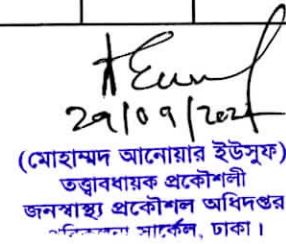 29/09/202
(মোহাম্মদ আনোয়ার ইউসুফ)
তত্ত্বাবধায়ক প্রকৌশলী
জনস্বাস্থ্য প্রকৌশল অধিদপ্তর
সার্কেল, ঢাকা।